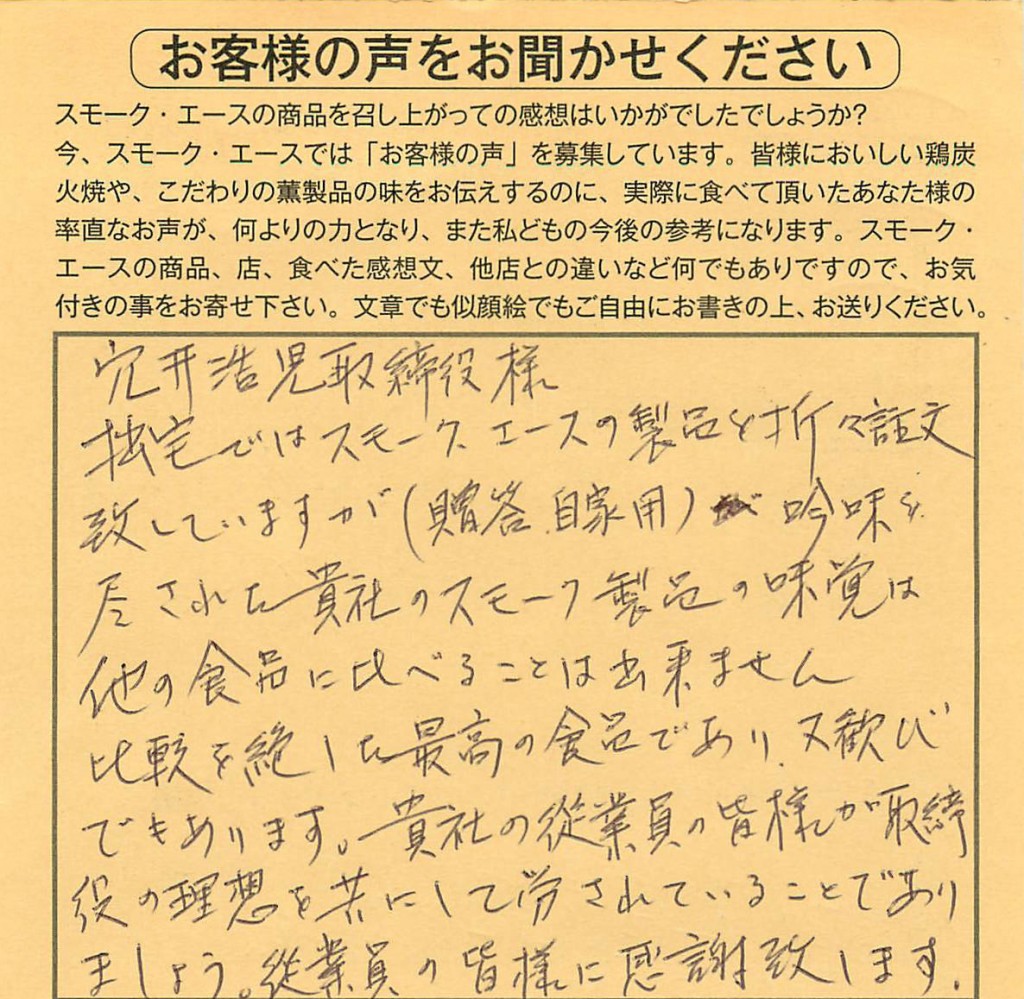 お客様の声をお聞かせください
スモーク・エースの商品を召し上がっての感想はいかがでしたでしょうか?
今、スモーク・エースでは「お客様の声」を募集しています。皆様においしい鶏炭
火焼や、こだわりの薫製品の味をお伝えするのに、実際に食べて頂いたあなた様の
率直なお声が、何よりの力となり、また私どもの今後の参考になります。スモーク・
エースの商品、店、食べた感想文、他店との違いなど何でもありですので、お気
付きの事をお寄せ下さい。文章でも似顔絵でもご自由にお書きの上、お送りください。
穴井浩児取締役様
拙宅ではスモーク、エースの製品を折々註文
致していますが(贈答、自家用)が吟味を
尽された貴社のスモーク製品の味覚は
他の食品に比べることは出来ません
比較を絶した最高の食品であり、又歓び
でもあります。貴社の従業員の皆様が取締
役の理想を共にして労されていることであり
ましょう。従業員の皆様に感謝致します.